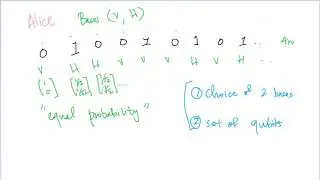 Alice Bases (V, H)
0 1 0 0 1 0 1 0 1 .. 4n
V H H V V H H V H ..
[1 0] [1/√2 -1/√2] [1/√2 1/√2] ...
"equal probability"
① choice of 2 bases
② set of qubits